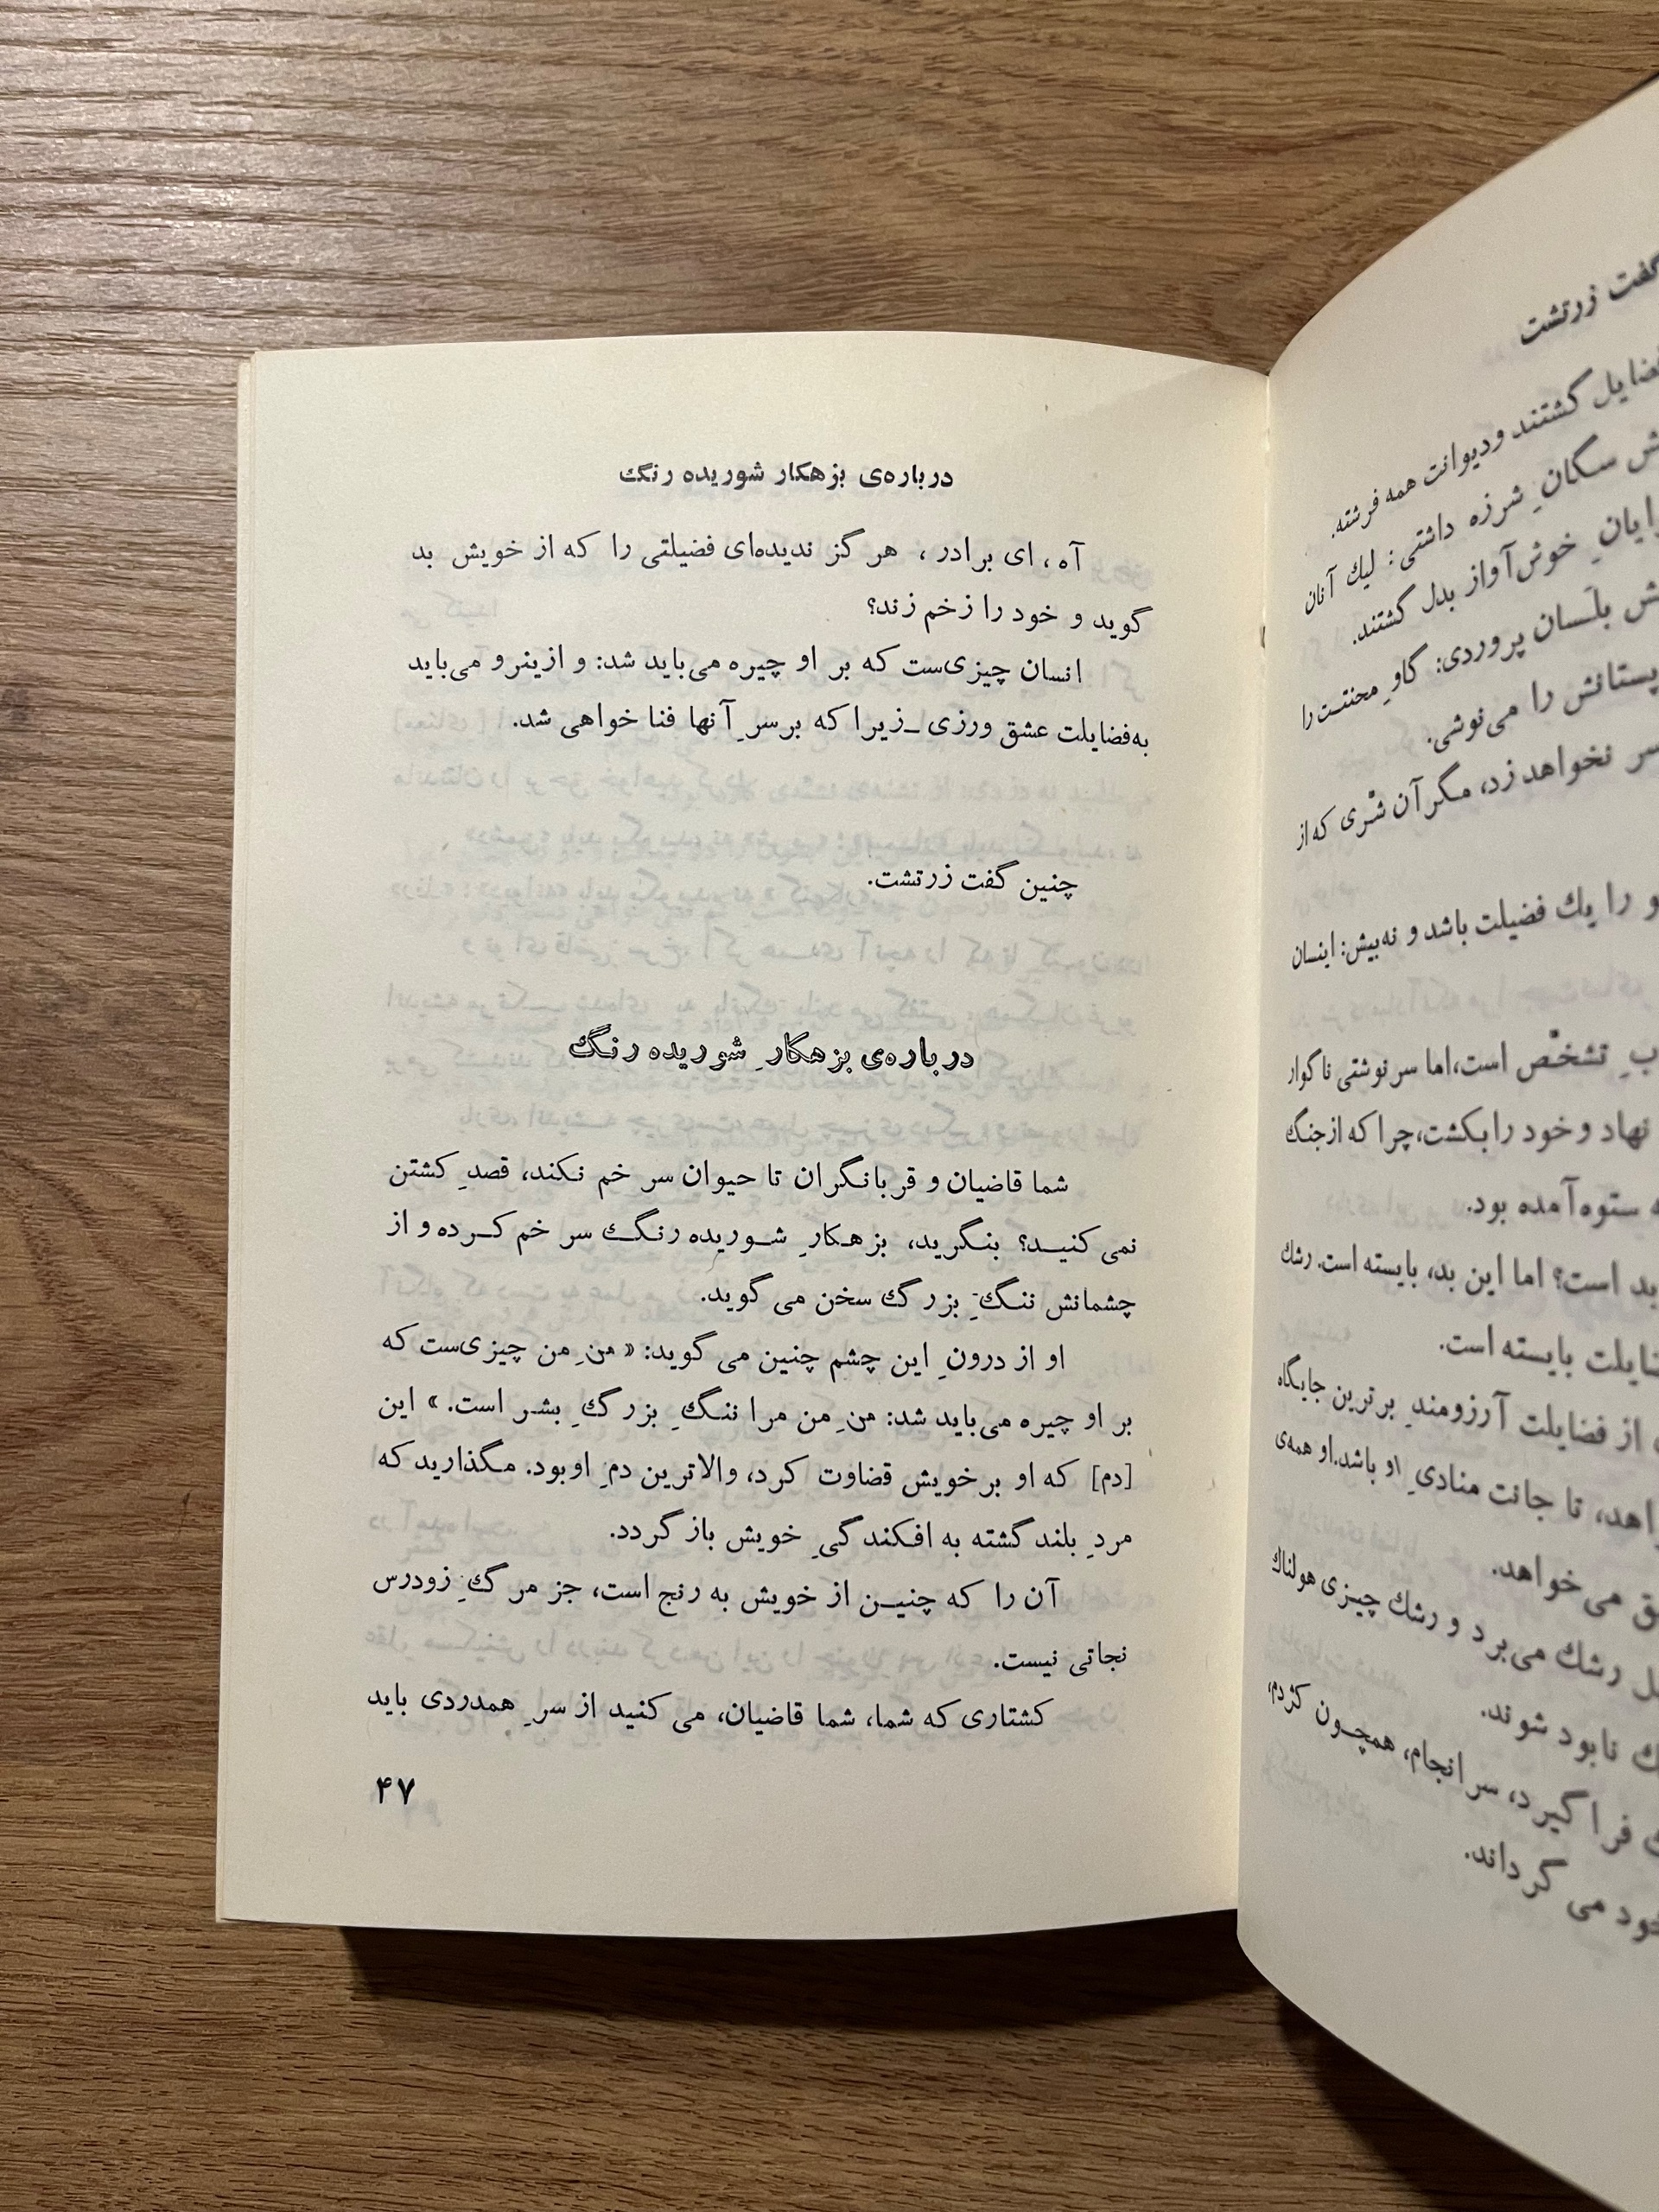 درباره‌ی بزهکار شوریده رنگ
آه، ای برادر، هرگز ندیده‌ای فضیلتی را که از خویش بد
گوید و خود را زخم زند؟
انسان چیزی‌ست که بر او چیره می‌باید شد: و ازینرو می‌باید
به‌فضایلت عشق ورزی ـ زیرا که بر سرِ آنها فنا خواهی شد.
چنین گفت زرتشت.
درباره‌ی بزهکارِ شوریده رنگ
شما قاضیان و قربانگران تا حیوان سر خم نکند، قصدِ کشتن
نمی کنید؟ بنگرید، بزهکارِ شوریده رنگ سر خم کرده و از
چشمانش ننگِ بزرگ سخن می گوید.
او از درونِ این چشم چنین می گوید: «منِ من چیزی‌ست که
بر او چیره می‌باید شد: منِ من مرا ننگِ بزرگِ بشر است.» این
[دم] که او بر خویش قضاوت کرد، والاترین دمِ او بود. مگذارید که
مردِ بلند گشته به افکندگیِ خویش باز گردد.
آن را که چنین از خویش به رنج است، جز مرگِ زودرس
نجاتی نیست.
کشتاری که شما، شما قاضیان، می کنید از سرِ همدردی باید
۴۷
گفت زرتشت
فضایل گشتند و دیوانت همه فرشته.
سگانِ شرزه داشتی: لیك آنان
خوش‌آواز بدل گشتند.
بلَسان پروردی: گاوِ محنتت را
پستانش را می‌نوشی.
سر نخواهد زد، مگر آن شرّی که از
را یك فضیلت باشد و نه بیش: اینسان
تشخّص است، اما سرنوشتی ناگوار
نهاد و خود را بکشت، چرا که از جنگ
ستوه آمده بود.
بد است؟ اما این بد، بایسته است. رشك
بایسته است.
از فضایلت آرزومندِ برترین جایگاه
تا جانت منادیِ او باشد. او همه‌ی
می‌خواهد.
رشك می‌برد و رشك چیزی هولناك
نابود شوند.
فرا گیرد، سرانجام، همچون کژدم،
می گرداند.